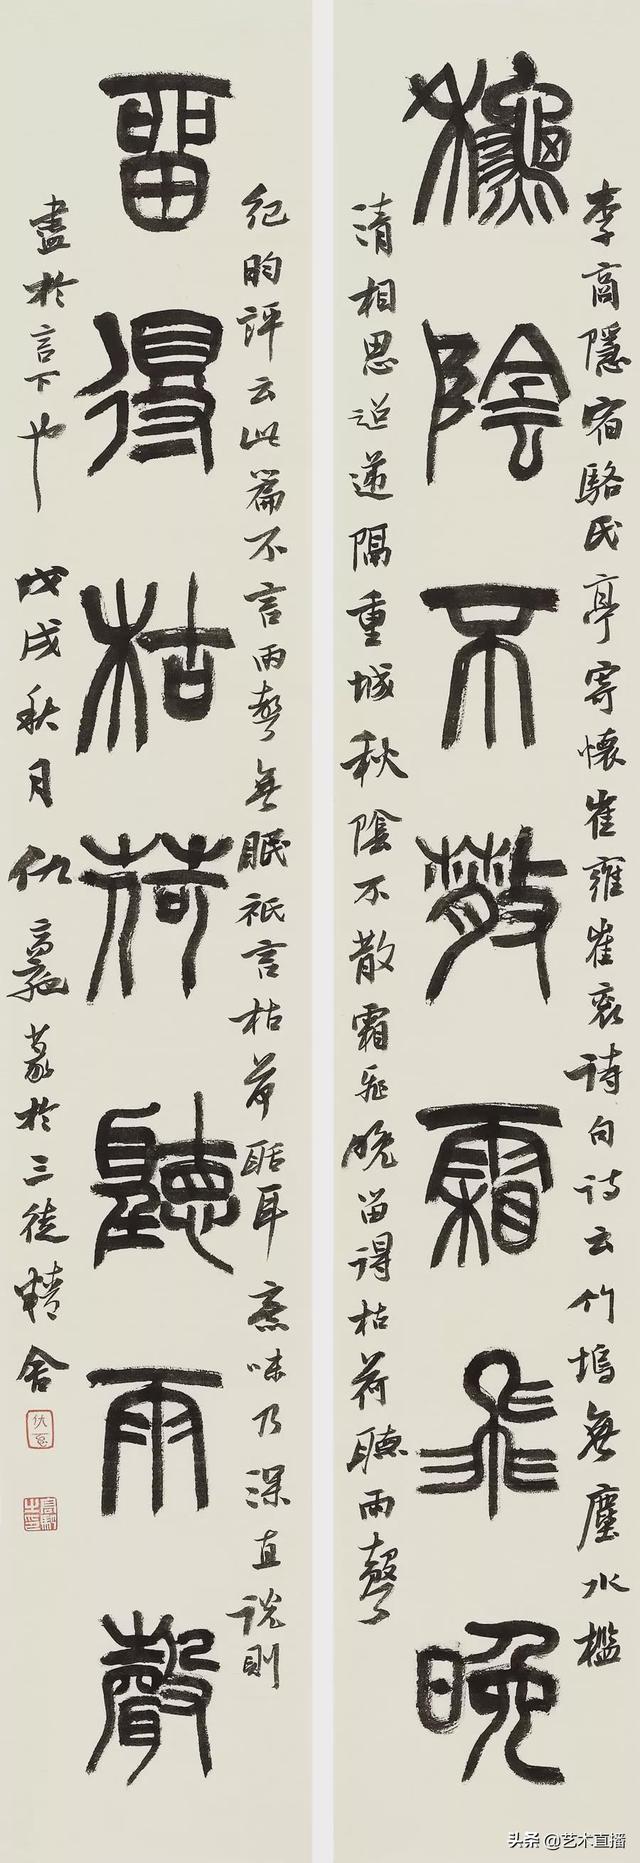 李商隱宿駱氏亭寄懷崔雍崔袞詩句詩云竹塢無塵水檻
龝陰不散霜飛晚
清相思迢遞隔重城秋陰不散霜飛晚留得枯荷聽雨聲
紀昀評云此篇不言雨聲無眠祇言枯荷聒耳意味乃深直説則
留得枯荷聽雨聲
盡於言下也 戊戌秋月仇高馳篆於三徒精舍
頭条 @艺术直播